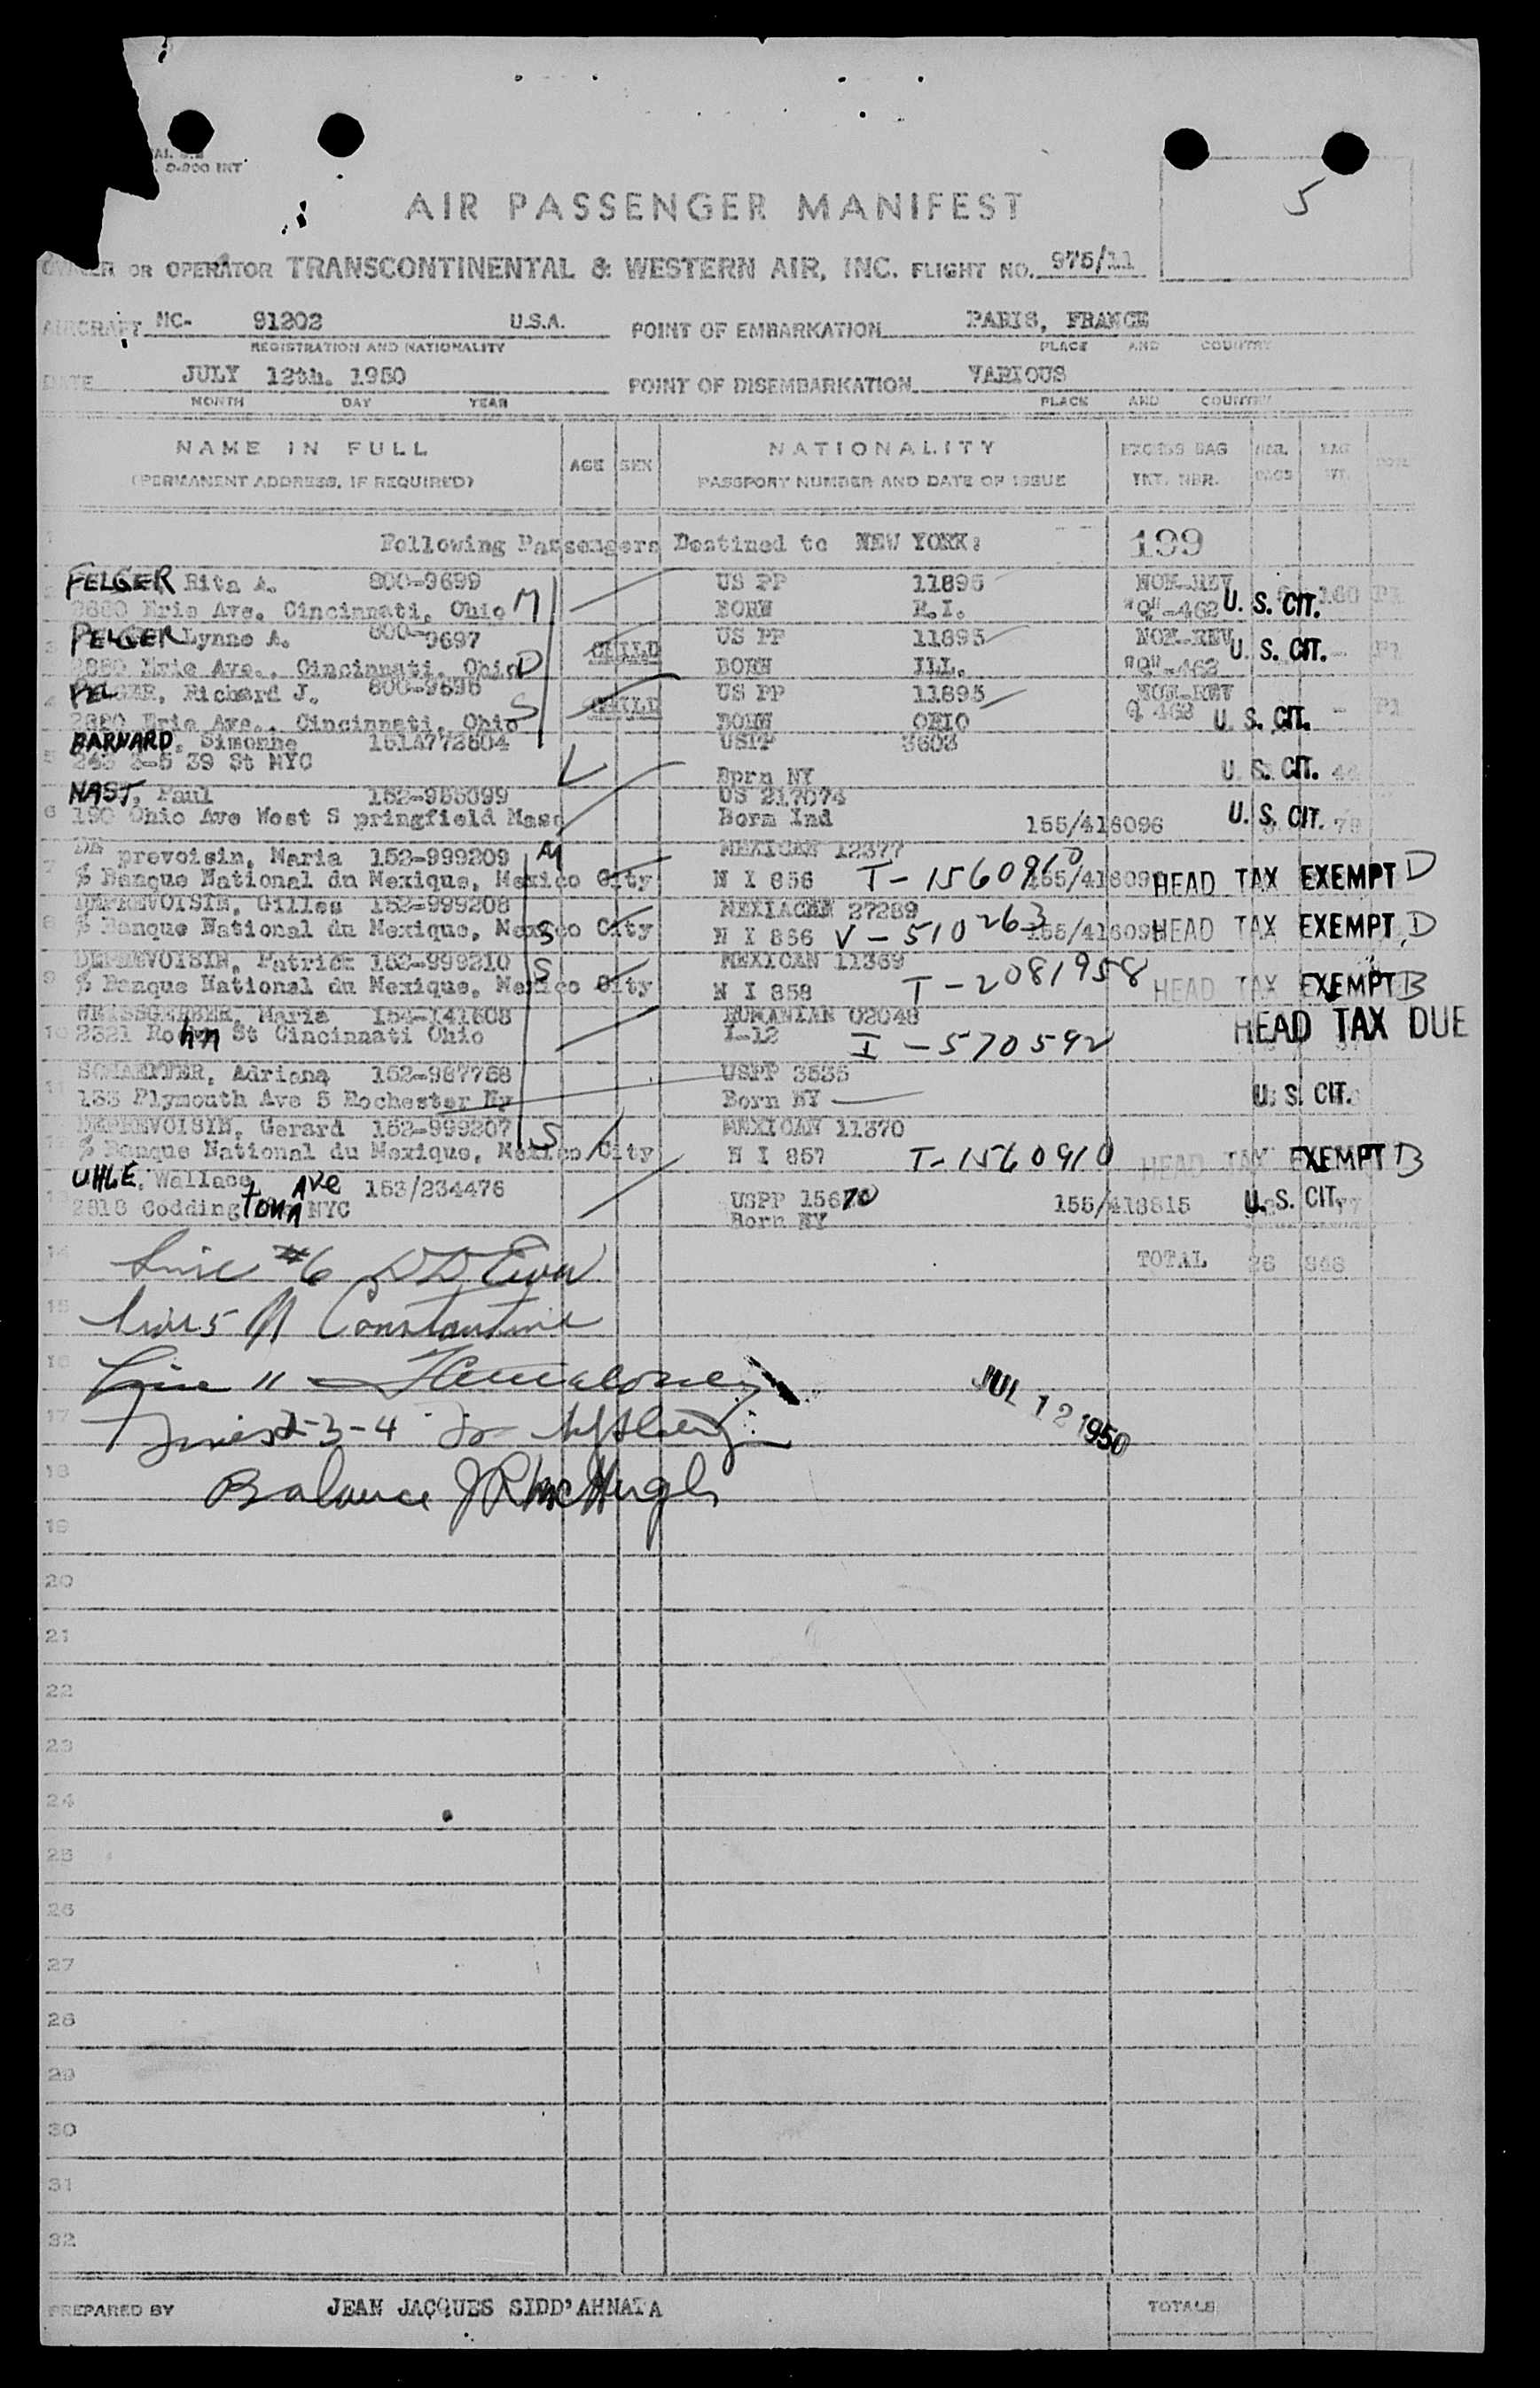 D-200 INT
5
AIR PASSENGER MANIFEST
OWNER OR OPERATOR TRANSCONTINENTAL & WESTERN AIR, INC. FLIGHT NO. 975/11
AIRCRAFT NC- 91202 U.S.A. POINT OF EMBARKATION PARIS, FRANCE
REGISTRATION AND NATIONALITY PLACE AND COUNTRY
DATE JULY 12th. 1950 POINT OF DISEMBARKATION VARIOUS
MONTH DAY YEAR PLACE AND COUNTRY
NAME IN FULL AGE SEX NATIONALITY EXCESS BAG
(PERMANENT ADDRESS, IF REQUIRED) PASSPORT NUMBER AND DATE OF ISSUE TKT. NBR.
1 Following Passengers Destined to NEW YORK: 199
2 FELGER Rita A. 800-9699 US PP 11895 NON-REV
2880 Erie Ave. Cincinnati, Ohio M BORN R.I. "Q"-462 U. S. CIT. 160 P1
3 FELGER Lynne A. 800-9697 CHILD US PP 11895 NON-REV
2880 Erie Ave., Cincinnati, Ohio D BORN ILL. "Q"-462 U. S. CIT. - P1
4 FELGER, Richard J. 800-9698 CHILD US PP 11895 NON-REV
2880 Erie Ave., Cincinnati, Ohio S BORN OHIO Q 462 U. S. CIT. - P1
5 BARNARD, Simonne 151A772604 USPP 3602
243 E-5 39 St NYC Born NY U. S. CIT. 44
6 NAST, Paul 152-985099 US 217074
190 Ohio Ave West S pringfield Mass Born Ind 155/418096 U. S. CIT. 79
7 DE prevoisin, Maria 152-999209 M MEXICAN 12377
% Banque National du Mexique, Mexico City N I 856 T-1560960 HEAD TAX EXEMPT D
8 DEPREVOISIN, Gilles 152-999208 MEXIACAN 27289
% Banque National du Mexique, Mexico City S N I 856 V-510263 HEAD TAX EXEMPT D
9 DEPREVOISIN, Patrick 152-999210 S MEXICAN 11369
% Banque National du Mexique, Mexico City N I 858 T-2081958 HEAD TAX EXEMPT B
10 WEISSGERBER, Maria 154-141608 RUMANIAN 02048
2321 Rohn St Cincinnati Ohio I-12 I-570592 HEAD TAX DUE
11 SCHAEFFER, Adriana 152-987758 USPP 3535
183 Plymouth Ave S Rochester Ny Born NY U. S. CIT.
12 DEPREVOISIN, Gerard 152-999207 S MEXICAN 11370
% Banque National du Mexique, Mexico City N I 857 T-1560910 HEAD TAX EXEMPT B
13 UHLE, Wallace 153/234476 USPP 15670 155/418815 U. S. CIT. 77
2818 Coddingtown Ave NYC Born NY
14 Line #6 TOTAL 26 848
15 Line 5 Constantine
16 Line 11
JUL 12 1950
17 Lines 2-3-4
18 Balance J R McHugh
19
20
21
22
23
24
25
26
27
28
29
30
31
32
PREPARED BY JEAN JACQUES SIDD'AHNATA TOTALS